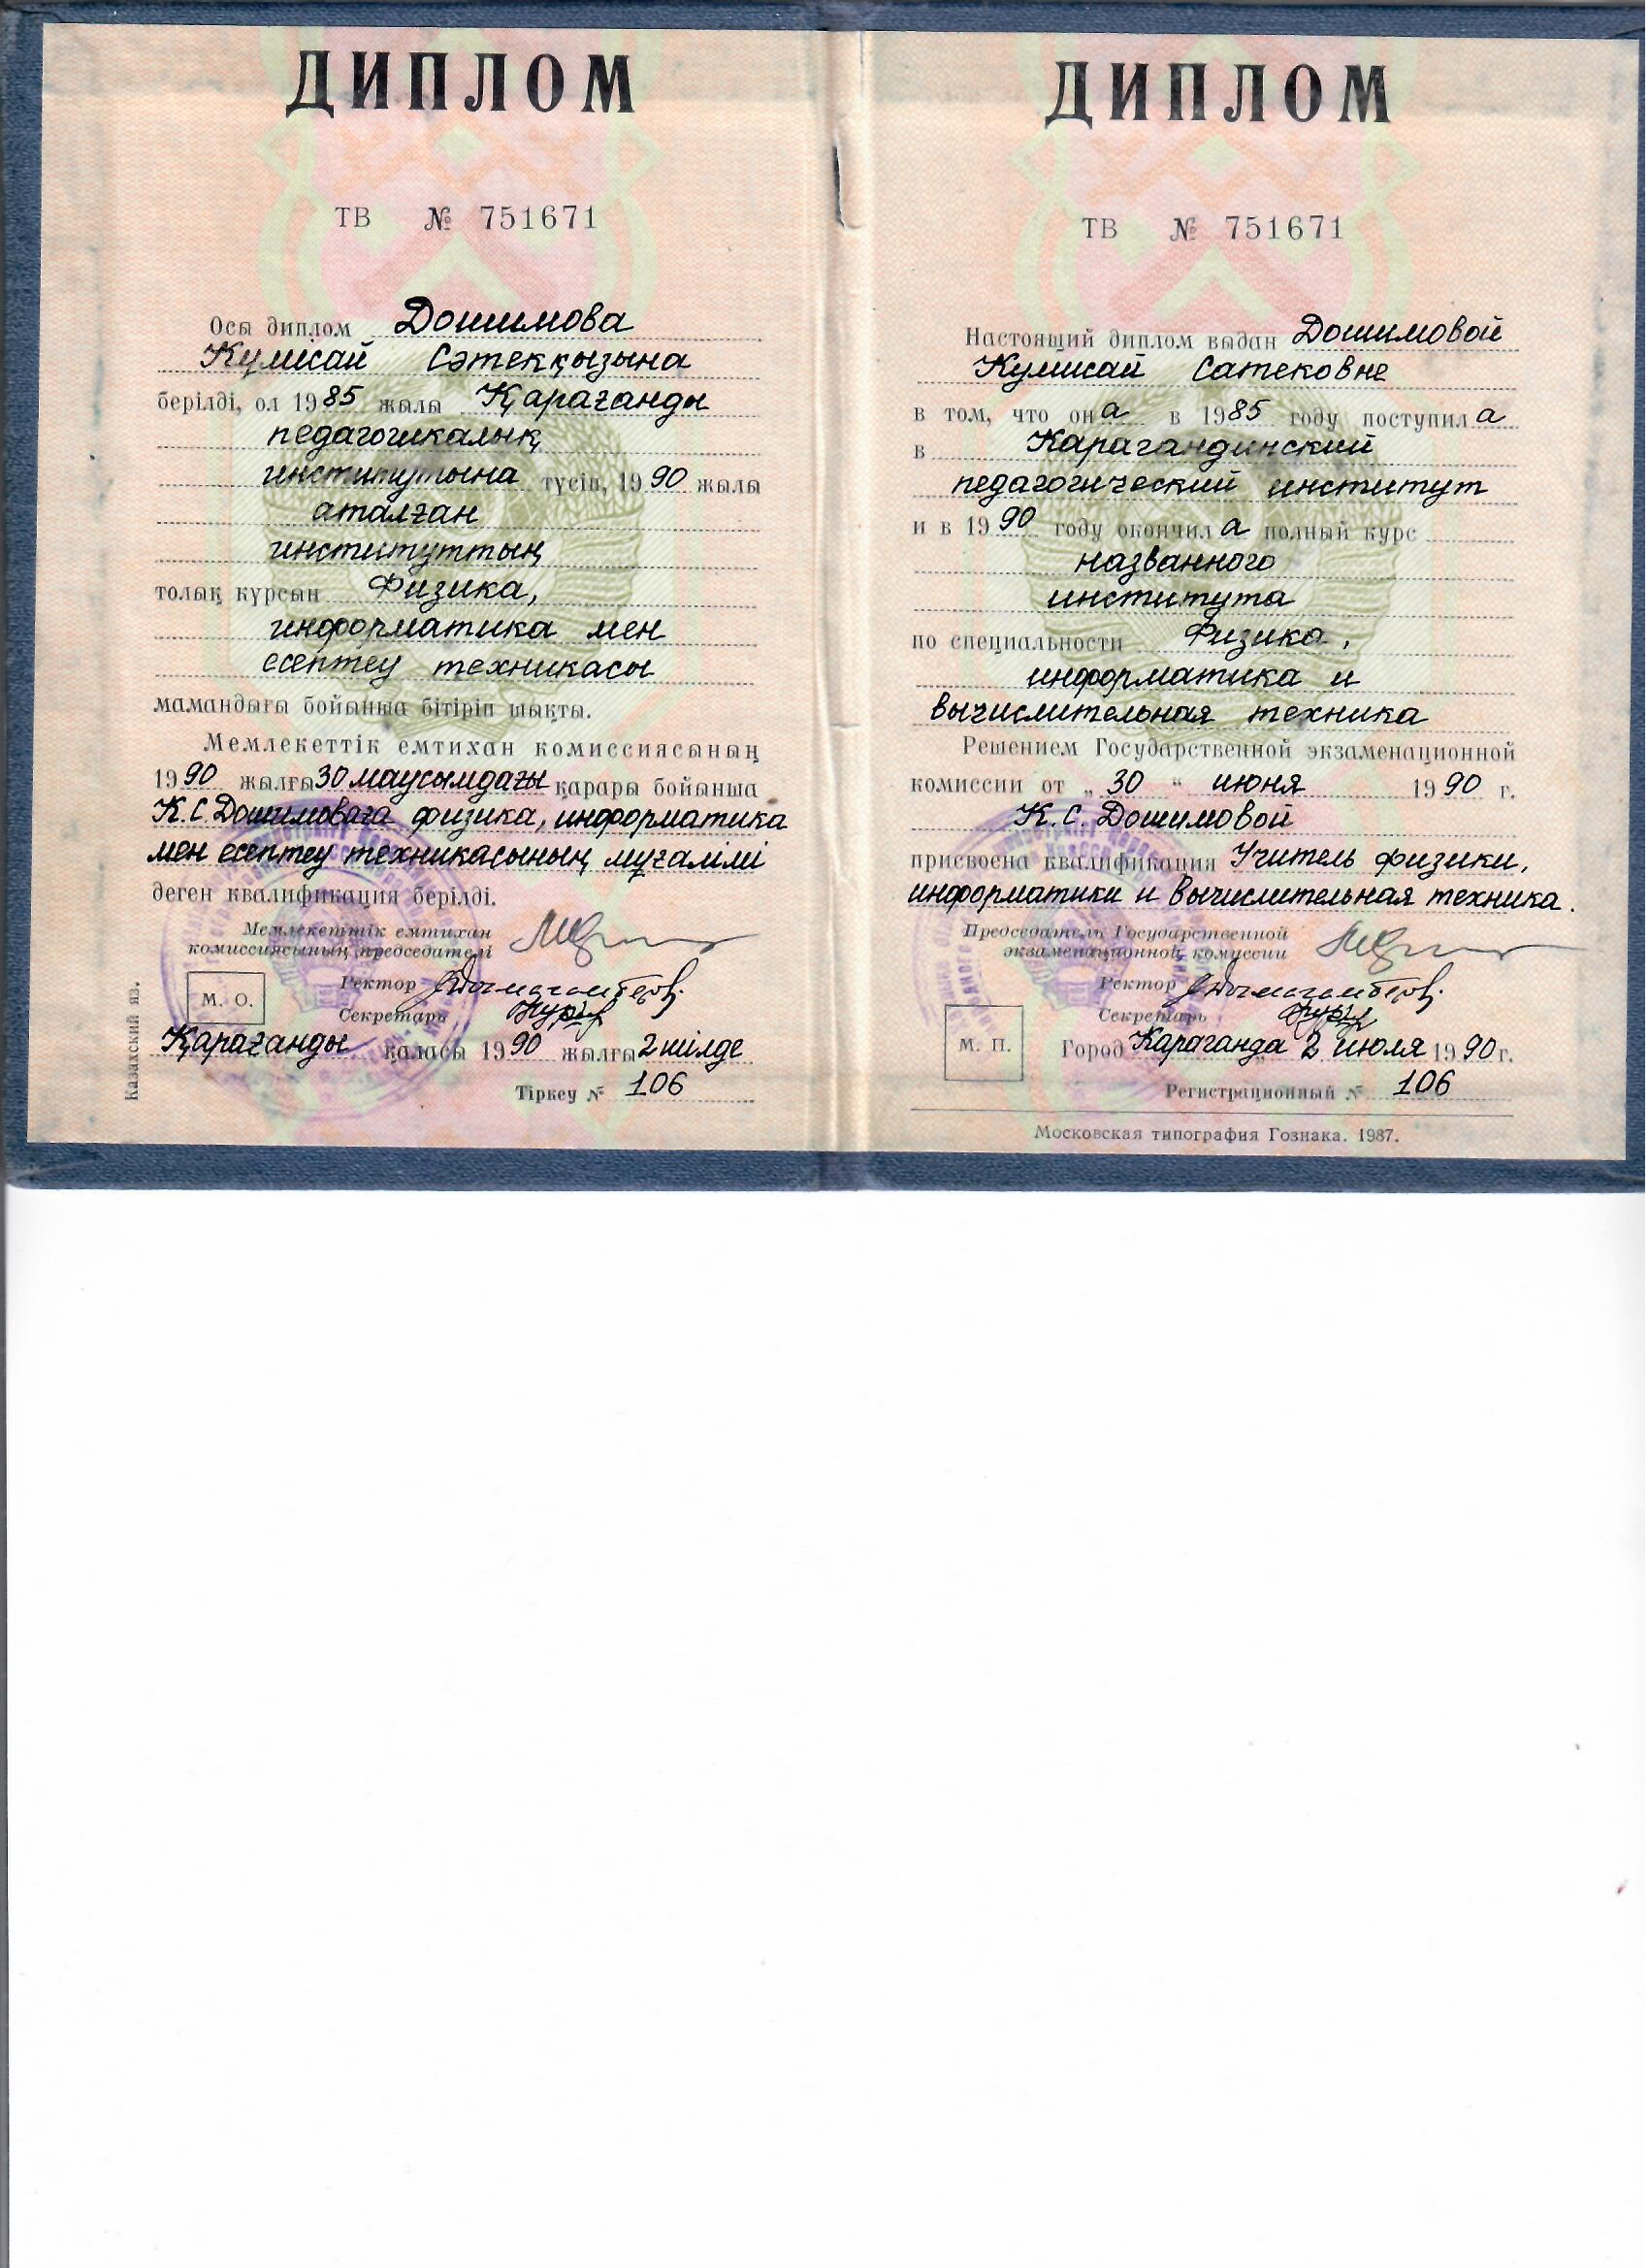 ДИПЛОМ
ТВ № 751671
Осы диплом Дошимова
Күмісай Сәтекқызына
берілді, ол 1985 жылы Қарағанды
педагогикалық
институтына түсіп, 1990 жылы
аталған
институттың
толық курсын Физика,
информатика мен
есептеу техникасы
мамандығы бойынша бітіріп шықты.
Мемлекеттік емтихан комиссиясының
1990 жылғы 30 маусымдағы қарары бойынша
К.С. Дошимоваға физика, информатика
мен есептеу техникасының мұғалімі
деген квалификация берілді.
Мемлекеттік емтихан
комиссиясының председателі
Ректор
М. О.
Секретарь
Қарағанды қаласы 1990 жылғы 2 шілде
Тіркеу № 106
Казахский яз.
ДИПЛОМ
ТВ № 751671
Настоящий диплом выдан Дошимовой
Кумисай Сатековне
в том, что она в 1985 году поступила
в Карагандинский
педагогический институт
и в 1990 году окончила полный курс
названного
института
по специальности Физика,
информатика и
вычислительная техника
Решением Государственной экзаменационной
комиссии от „30“ июня 1990 г.
К. С. Дошимовой
присвоена квалификация Учитель физики,
информатики и вычислительная техника.
Председатель Государственной
экзаменационной комиссии
Ректор
Секретарь
М. П.
Город Караганда 2 июля 1990 г.
Регистрационный № 106
Московская типография Гознака. 1987.